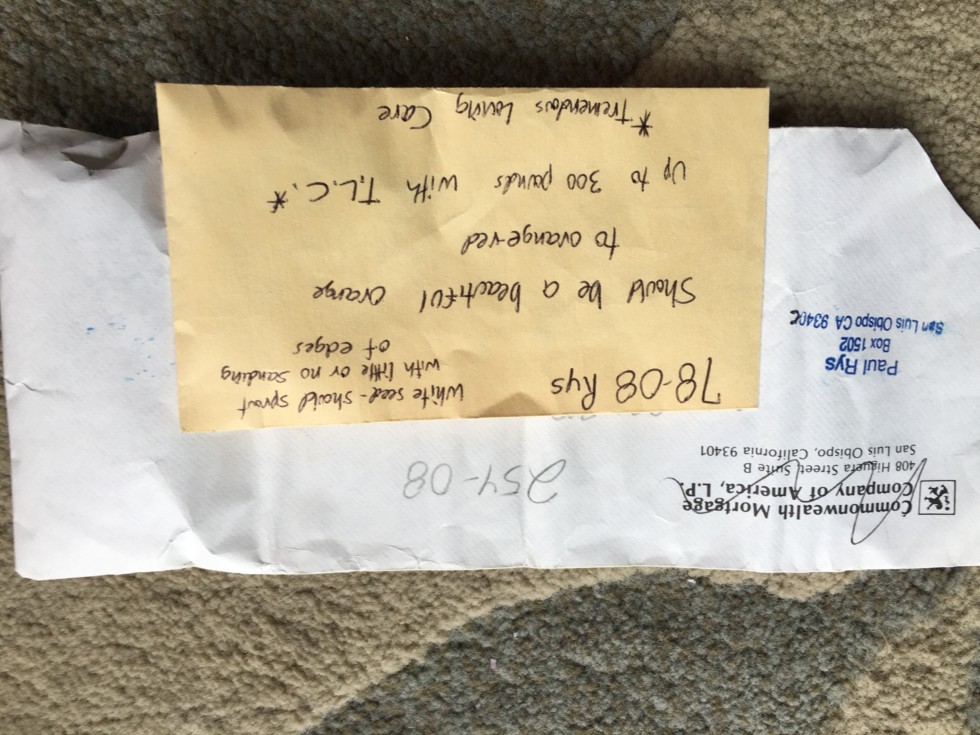 Commonwealth Mortgage
Company of America, L.P.
408 Higuera Street, Suite B
San Luis Obispo, California 93401
254-08
Paul Rys
Box 1502
San Luis Obispo CA 93406
78-08 Rys
White seed - should sprout
with little or no sanding
of edges
Should be a beautiful orange
to orange-red
Up to 300 pounds with T.L.C.*
*Tremendous Loving Care